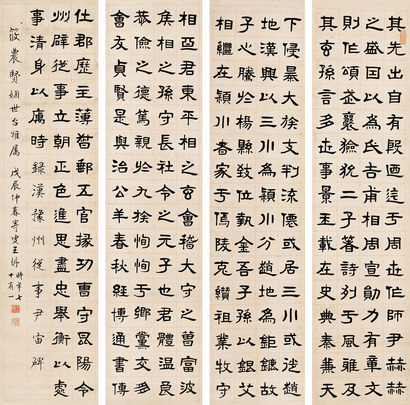 其先出自有殷迺迄于周世作師尹赫赫
之盛因以為氏吉甫相周宣勛力有章文
則作頌武襄獫狁二子著詩列于風雅及
其玄孫言多世事景王載在史典秦兼天
下侵暴大族支判流僊或居三川或徙趙
地漢興以三川為潁川分趙地為鉅鏕故
子心騰於楊縣致位執金吾子孫以銀艾
相繼在潁川者家于傿陵克纘祖業牧守
相亞君東平相之玄會稽大守之曾富波
侯相之孫守長社令之元子也君體溫良
恭儉之德篤親於九族恂恂于鄉黨交朋
會友貞賢是與治公羊春秋經博通書傳
仕郡歷主簿督郵五官掾功曹守昆陽令
州辟從事立朝正色進思盡忠舉衡以處
事清身以厲時 錄漢豫州從事尹宙碑
筱農賢姻世台雅屬 戊辰仲春 叟王 時年七十有一